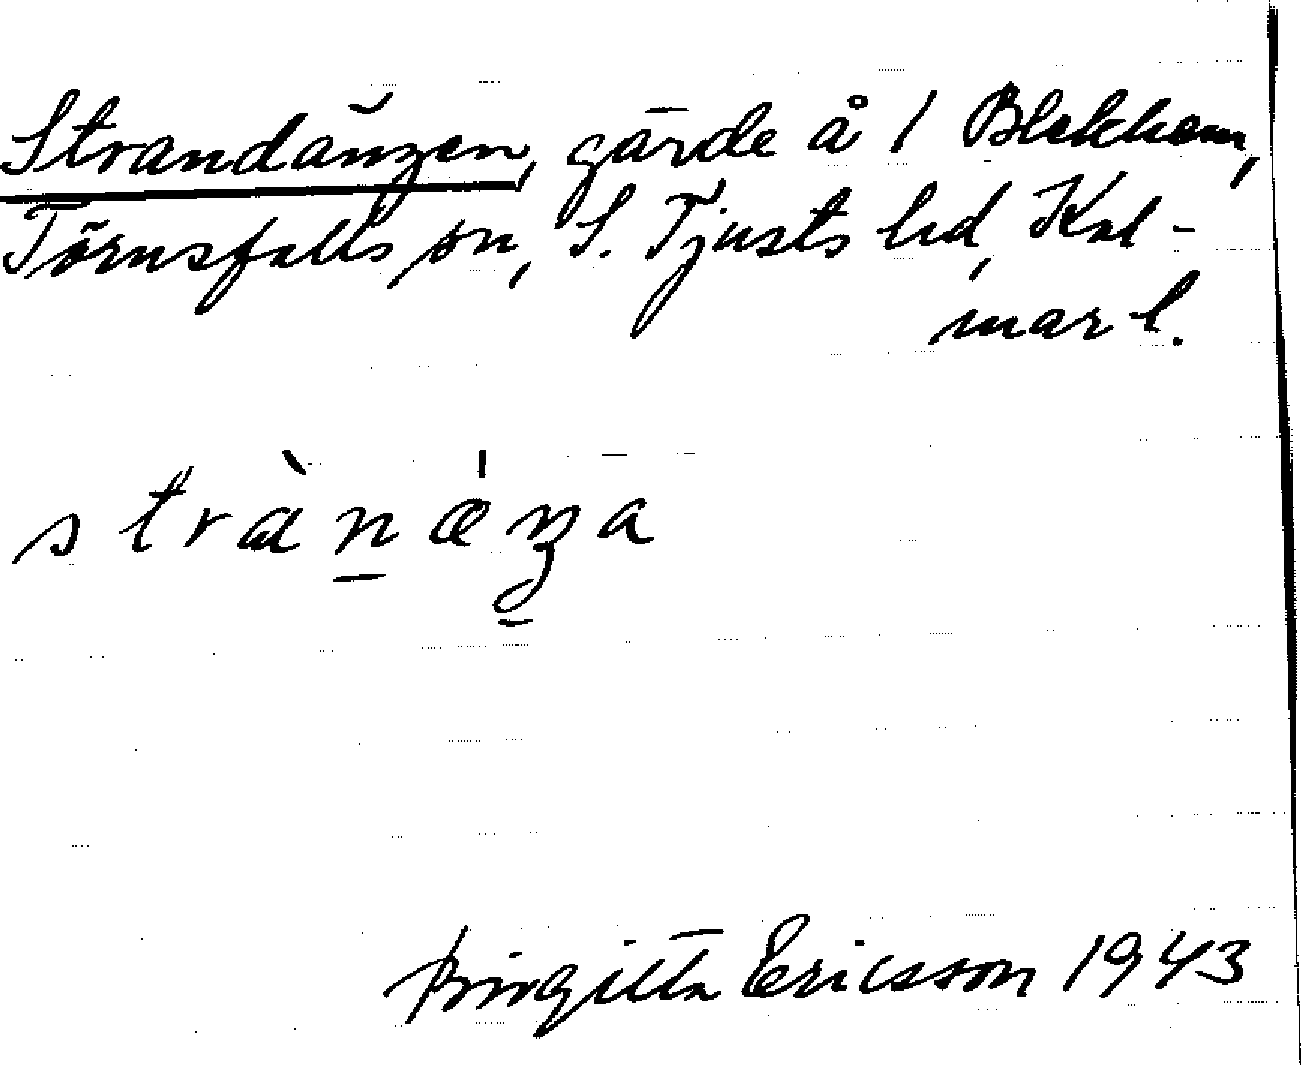 Strandängen, gärde å 1 Blekhem,
Törnsfalls sn, S. Tjusts hd, Kal-
mar l.
Birgitta Ericsson 1943